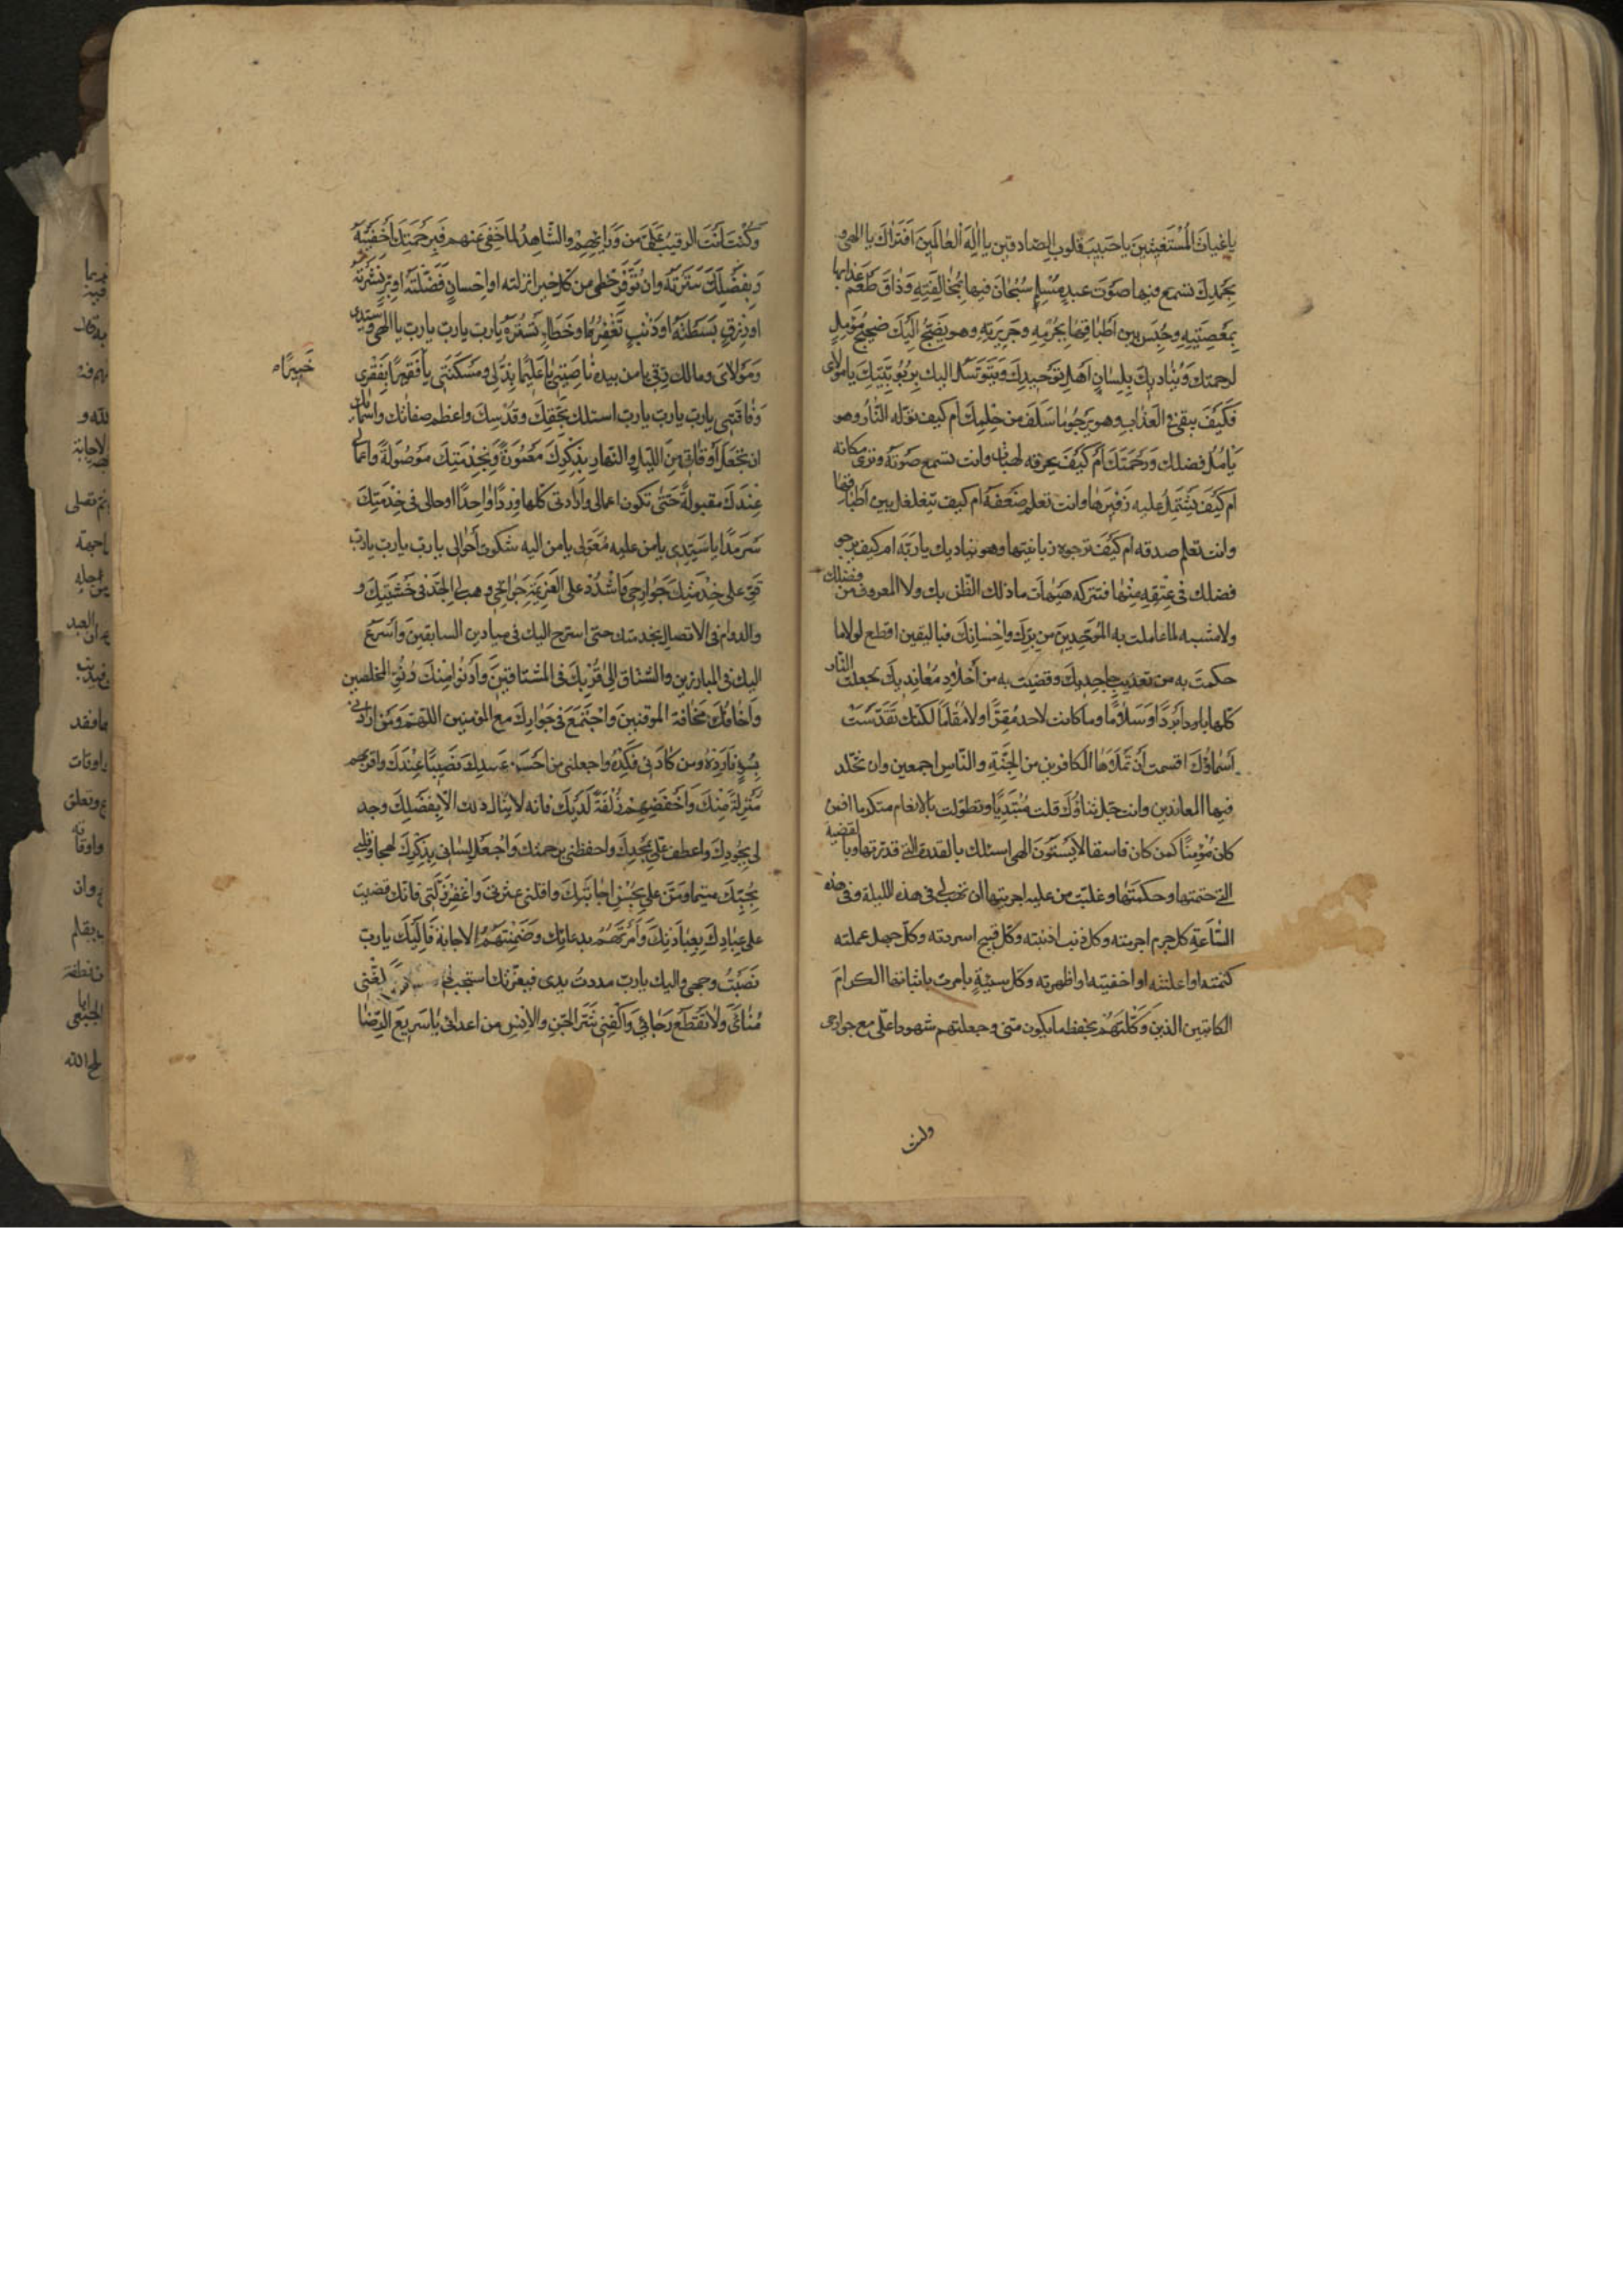 يا غياث المُسْتَغيثينَ يا حَبيبَ قلوبِ الصّادقين يا اِلهَ العالَمينَ اَفَتُراكَ يا الهى و
بِحَمْدِكَ تسمع فيها صَوْتَ عبدٍ مُسْلِمٍ سُجِنَ فيها بِمُخالَفَتِهِ وَذاقَ طَعْمَ عذابها
بِمَعْصِيَتِهِ وحُبِسَ بين اَطْباقِها بِجُرْمِهِ وجَرِيرَتِهِ وهو يَضِجُّ اِلَيْكَ ضجيجَ مُؤَمِّلٍ
لرحمتك وَيُناديكَ بِلِسانِ اَهْلِ تَوْحيدِكَ وَيَتَوَسَّلُ اليك بِرُبُوبِيَّتِكَ يا مولاى
فَكَيْفَ يبقى فى العَذابِ وهو يَرْجُو ما سَلَفَ من حِلْمِكَ اَم كيف تؤلمه النّارُ وهو
يَأمُلُ فضلك وَرَحْمَتَكَ اَمْ كَيْفَ يحرقه لهبها وانت تسمع صَوْتَه وترى مكانه
ام كَيْفَ يَشْتَمِلُ عليه زَفيرُها وانت تعلم ضَعْفَهُ ام كيف يتغلغل بين اَطْباقها
وانت تعلم صدقه ام كَيْفَ تزجره زبانيتها وهو يناديك يا رَبَّه ام كيف يرجو
فضلك فى عِتْقِهِ مِنْها فتتركه هَيْهاتَ ما ذلك الظّن بك ولا المعروف من فضلك
ولا مشبه لما عاملت به المُوَحِّدينَ من بِرِّكَ واِحْسانِكَ فباليقين اقطع لولا ما
حكمتَ به من تعذيب جاحديكَ وقضيت به من اخلاد مُعانديكَ لجعلت النار
كلها بَرْدًا وَسَلامًا وما كانت لاحد مُقرًّا ولا مُقامًا لكنّك تَقَدَّسَتْ
اَسْماؤُكَ اقسمت اَنْ تَمْلَأَها الكافرين من الجنَّةِ والنّاسِ اجمعين وان تخلّد
فيها المعاندين وانت جَلَّ ثناؤُكَ قلت مُبْتَدِيًا وتطوّلت بالانعام متكرما افمن
كان مُؤْمِنًا كمن كان فاسقا لا يَسْتَوُونَ الهى اسئلك بالقدرة التى قدرتها وبالقضية
التى حتمتها وحكمتها وغلبت من عليه اجريتها ان تهب لى فى هذه الليلة وفى هذه
السّاعَةِ كل جرم اجرمته وكل ذنب اذنبته وكل قبيح اسررته وكلّ جهل عملته
كتمته او اعلنته او اخفيته او اظهرته وكل سيّئةٍ امرت باثباتها الكرامَ
الكاتبين الذينَ وَكَّلْتَهُمْ بحفظ ما يكون منّى وجعلتهم شهودا علَىّ مع جوارحى
وكُنْتَ اَنْتَ الرقيبَ عَلَىَّ من وَرائِهِمْ والشّاهِدَ لما خَفِىَ عَنهم فَبِرَحْمَتِكَ اَخْفَيْتَهُ
وَبِفَضْلِكَ سَتَرْتَهُ وان تُوَفِّرَ حَظّى من كل خير انزلته او اِحْسانٍ فَضَّلْتَهُ او بِرٍّ نَشَرْتَهُ
او رزقٍ بَسَطْتَهُ او ذَنْبٍ تَغْفِرُهُ او خَطَاءٍ تَسْتُرُهُ يا ربّ يا ربّ يا ربّ يا الهى وسيّدى
وَمَوْلاىَ ومالك رقى يا من بيده ناصِيَتى يا عَليمًا بِذُلّى ومَسْكَنَتى يا فَقيرًا بِفَقْرى
خَبِيرًا
وَفاقَتى يا ربّ يا ربّ يا ربّ اسئلك بِحَقِّكَ وقُدْسِكَ واعظم صفاتك واسمائك
ان تَجْعَلَ اَوْقاتى مِنَ اللّيْلِ والنّهارِ بِذِكْرِكَ مَعْمُورَةً وبِخِدْمَتِكَ مَوْصُولَةً واعمالى
عِنْدَكَ مقبولةً حَتّى تكون اعمالى وَاِرادتى كلّها وِرْدًا واحِدًا وحالى فى خِدْمَتِكَ
سَرمَدًا يا سَيّدى يا من عليه مُعَوَّلى يا من اليه شكوت اَحْوالى يا ربّ يا ربّ يا ربّ
قوِّ على خِدْمَتِكَ جَوارِحى وَاشْدُدْ على العَزيمَةِ جَوانِحى وهب لى الجِدَّ فى خَشْيَتِكَ و
والدوام فى الاتصال بخدمتك حتى اسرح اليك فى ميادين السابقينَ واُسْرِعَ
اليك فى المبارزين واشتاقَ اِلى قُرْبِكَ فى المُشْتاقينَ وَاَدْنُوَ مِنْكَ دُنُوَّ المخلصين
واَخافَكَ مَخافَة الموقنينَ واَجْتَمِعَ فى جَوارِكَ مع المؤمنين اللهمّ وَمَنْ ارادنى
بِسُوءٍ فَاَرِدْهُ ومن كادَنى فَكِدْهُ واجعلنى من احسن عبيدك نَصيبًا عِنْدَكَ واقربهم
مَنْزِلَةً مِنْكَ وَاَخَصِّهِمْ زُلْفَةً لَدَيْكَ فانه لا يُنال ذلك الّا بِفَضْلِكَ وجد
لى بِجُودِكَ واعطف علَىَّ بِمَجْدِكَ واحفظنى برحمتك وَاجْعَلْ لِسانى بِذِكْرِكَ لهجا وقلبى
بِحُبِّكَ متيّما ومُنَّ علىّ بِحُسْنِ اجابَتِكَ واقلنى عثرتى وَاغْفِرْ زَلَّتى فانّك قضيت
على عِبادِكَ بِعِبادَتِكَ وَاَمَرْتَهُمْ بدعائِك وضَمِنْتَ لَهُمُ الاجابة فَاِلَيْكَ يا ربّ
نَصَبْتُ وجهى واليك يا ربّ مددتُ يدى فبعزّتك استجب لى وبلّغنى
مُنائىَ وَلا تَقْطَعْ رَجائى وَاكْفِنى شَرَّ الجِنِّ والاِنْسِ من اعدائى يا سَريعَ الرّضا
وكنت